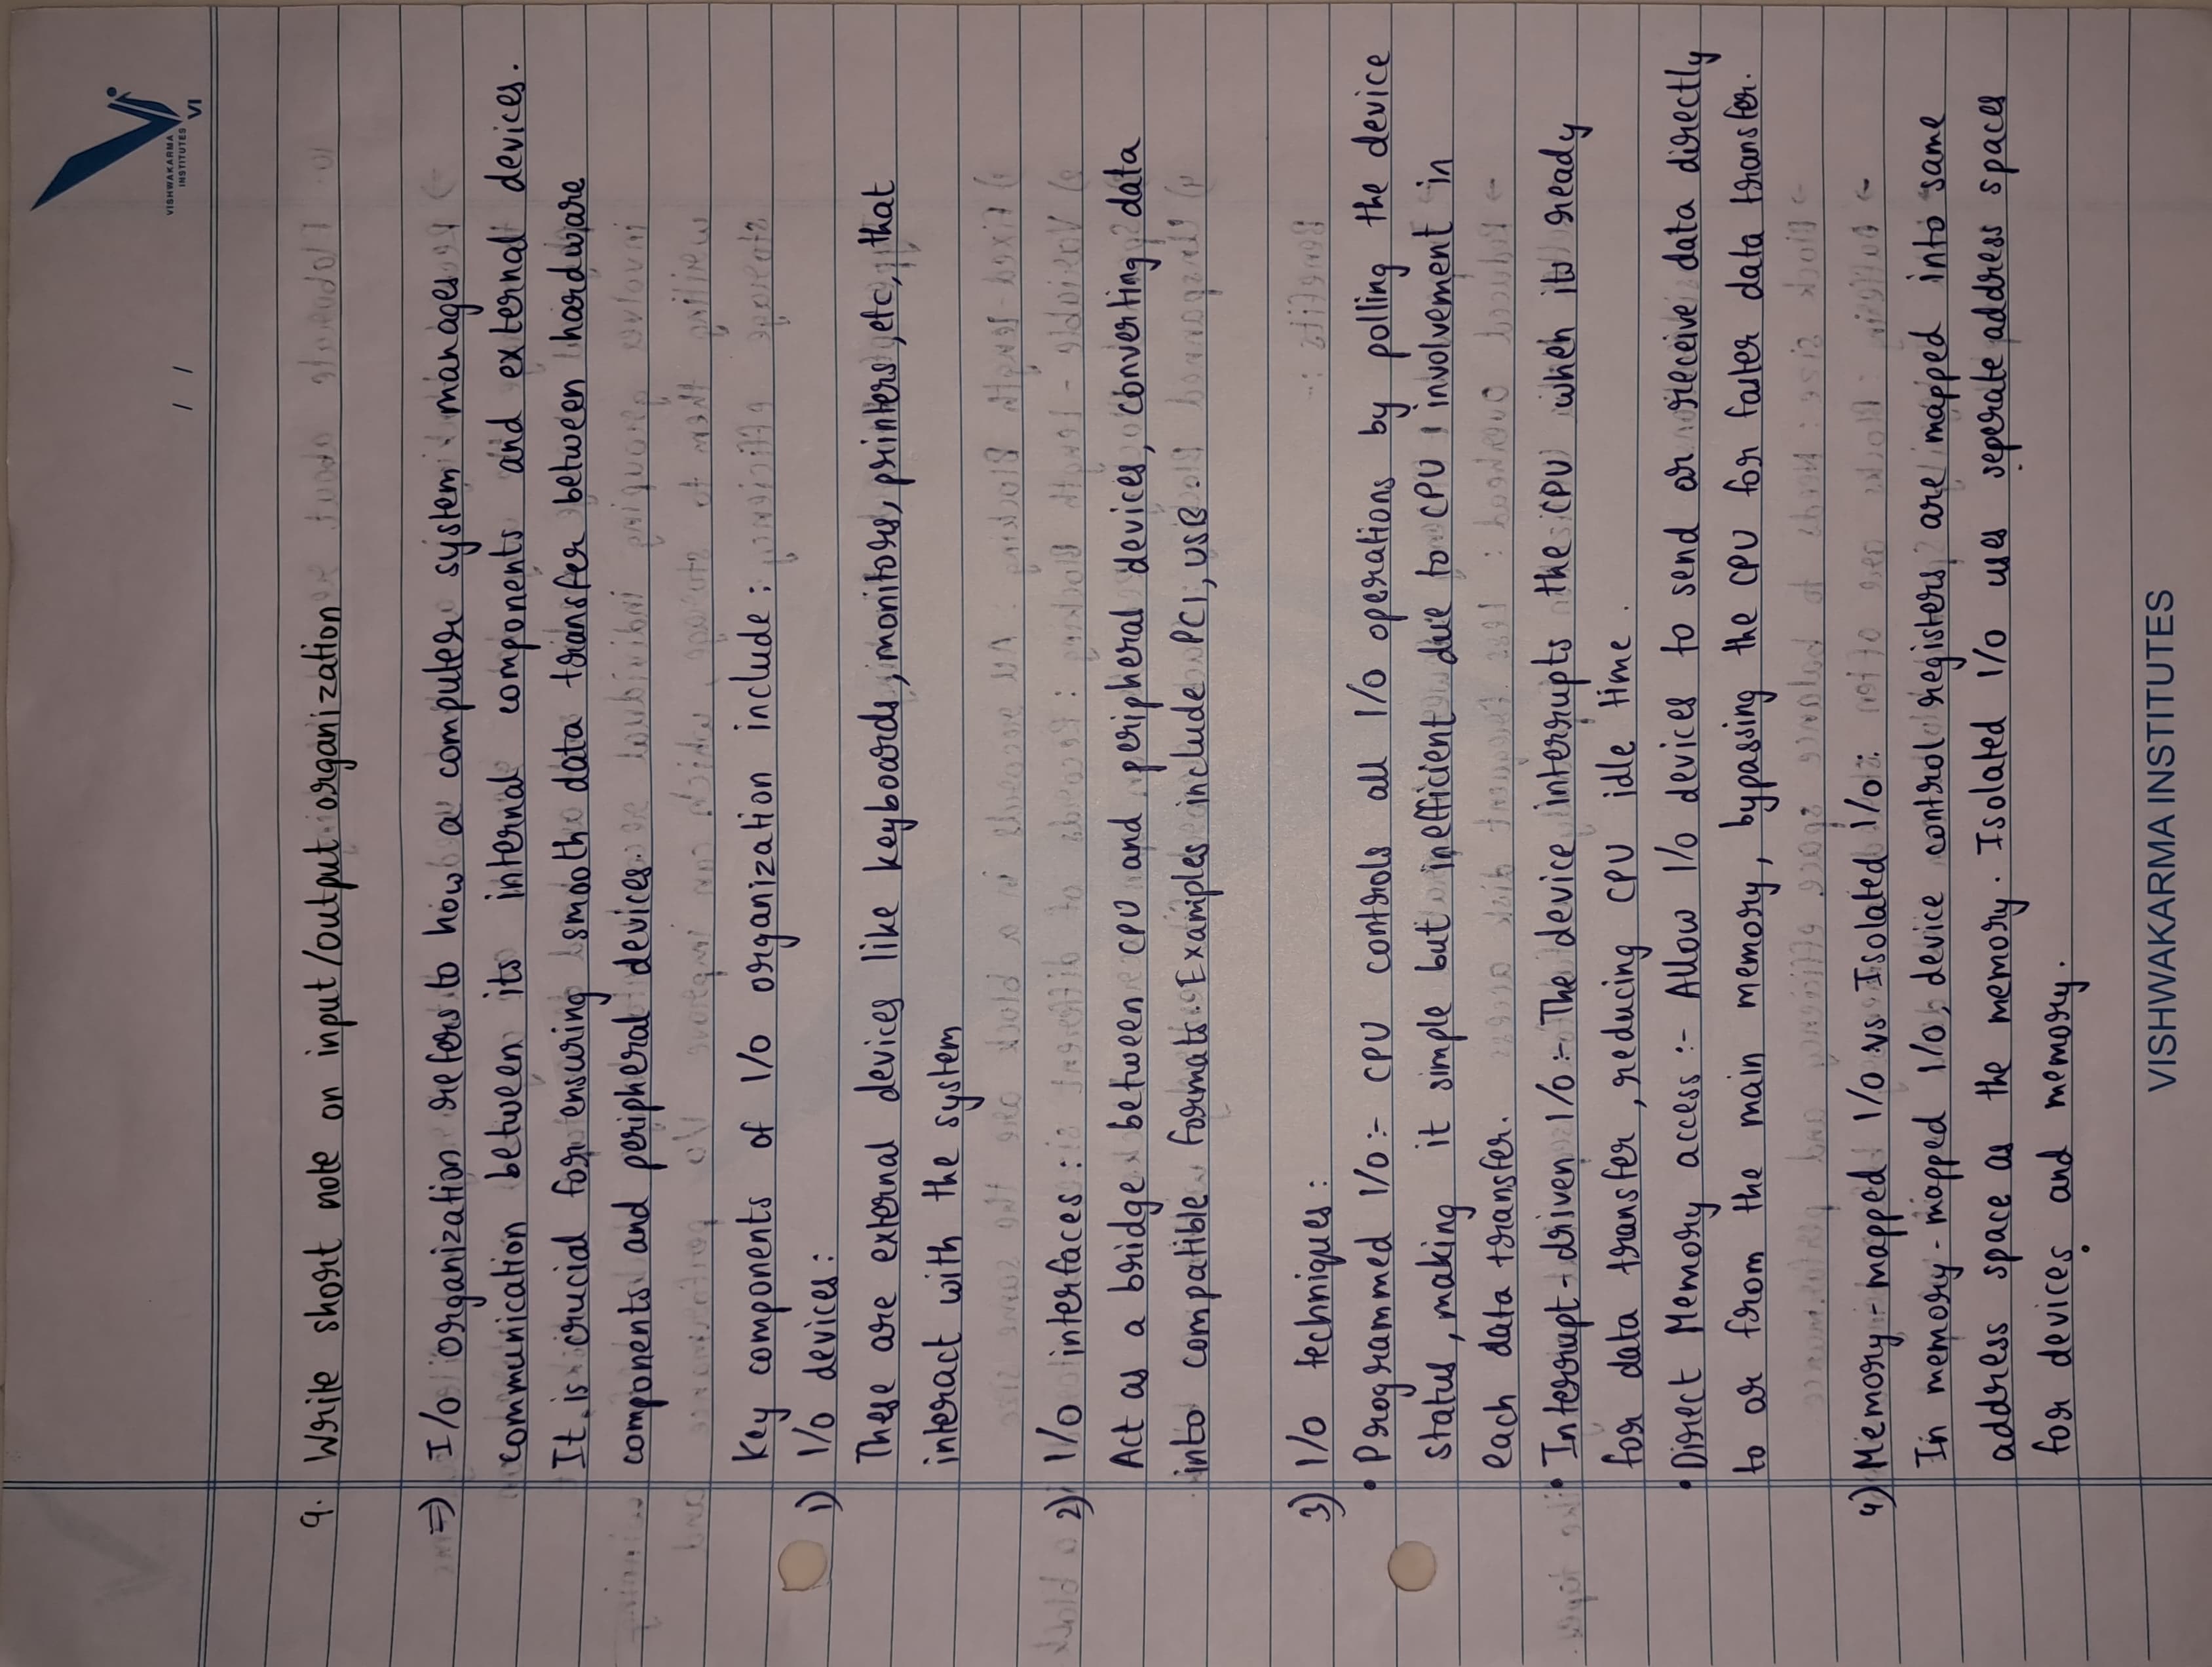 VISHWAKARMA
INSTITUTES
VI
/ /
9. Write short note on input/output organization
⇒ I/O organization refers to how a computer system manages
communication between its internal components and external devices.
It is crucial for ensuring smooth data transfer between hardware
components and peripheral devices.
Key components of I/O organization include :
1) I/O devices :
These are external devices like keyboards, monitors, printers, etc, that
interact with the system
2) I/O interfaces :
Act as a bridge between CPU and peripheral devices, converting data
into compatible formats. Examples include PCI, USB.
3) I/O techniques :
• Programmed I/O :- CPU controls all I/O operations by polling the device
status, making it simple but inefficient due to CPU involvement in
each data transfer.
• Interrupt-driven I/O :- The device interrupts the CPU when its ready
for data transfer, reducing CPU idle time.
• Direct Memory access :- Allow I/O devices to send or receive data directly
to or from the main memory, bypassing the CPU for faster data transfer.
4) Memory-mapped I/O vs Isolated I/O :
In memory-mapped I/O, device control registers are mapped into same
address space as the memory. Isolated I/O uses seperate address spaces
for devices and memory.
VISHWAKARMA INSTITUTES